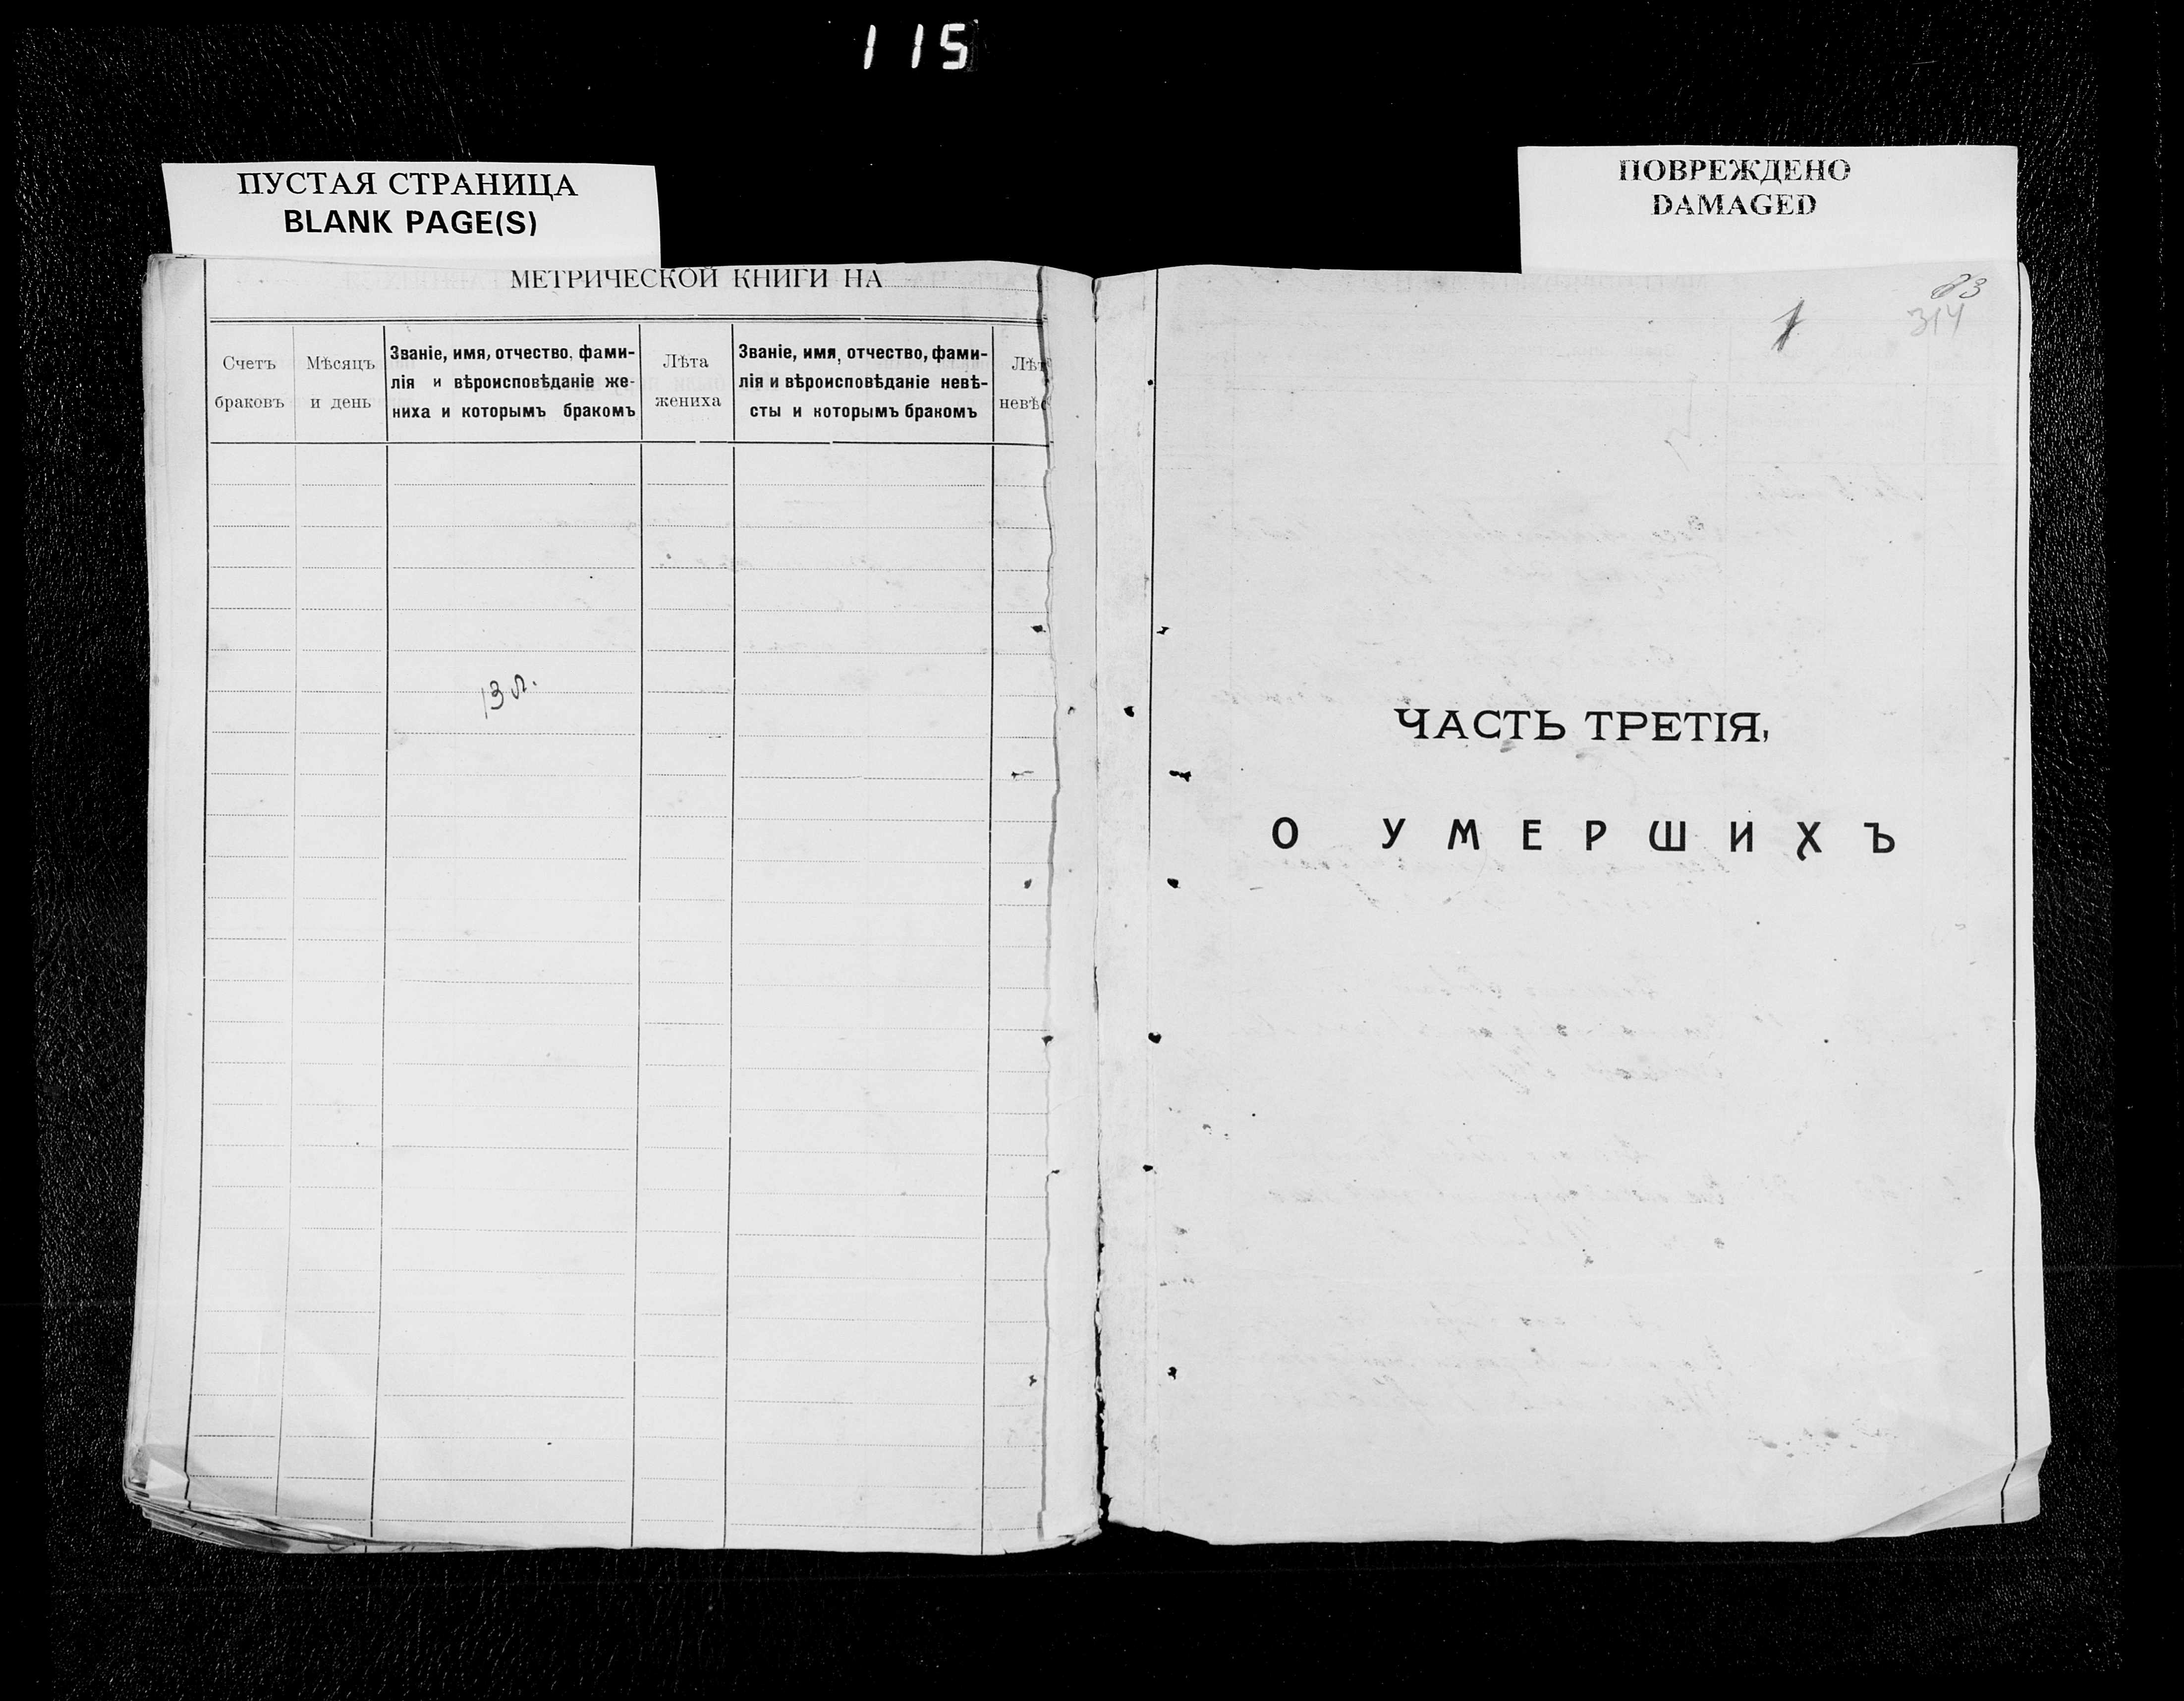 115
ПУСТАЯ СТРАНИЦА
BLANK PAGE(S)
ПОВРЕЖДЕНО
DAMAGED
МЕТРИЧЕСКОЙ КНИГИ НА
Счетъ
браковъ
Мѣсяцъ
и день
Званіе, имя, отчество, фами-
лія и вѣроисповѣданіе же-
ниха и которымъ бракомъ
Лѣта
жениха
Званіе, имя, отчество, фами-
лія и вѣроисповѣданіе невѣ-
сты и которымъ бракомъ
Лѣт
невѣс
13 л.
83
314
1
ЧАСТЬ ТРЕТІЯ,
О УМЕРШИХЪ